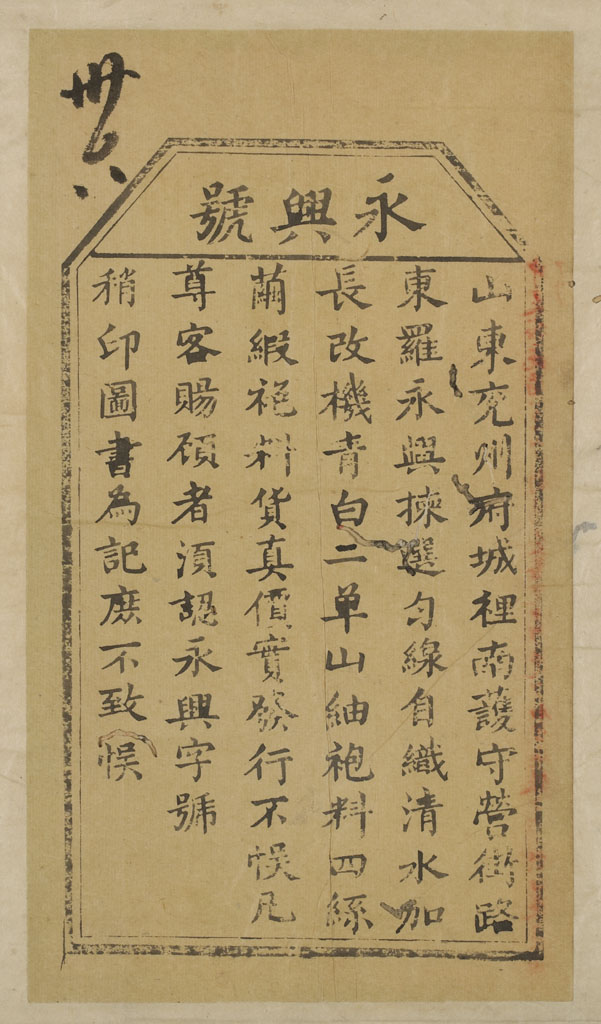 卅六
永興號
山東兖州府城裡南護守營街路
東羅永興揀選勻線自織清水加
長改機青白二单山紬袍料四絲
繭緞袍料貨真價實發行不悞凡
尊客賜顧者須認永興字號
稍印圖書為記庶不致悞